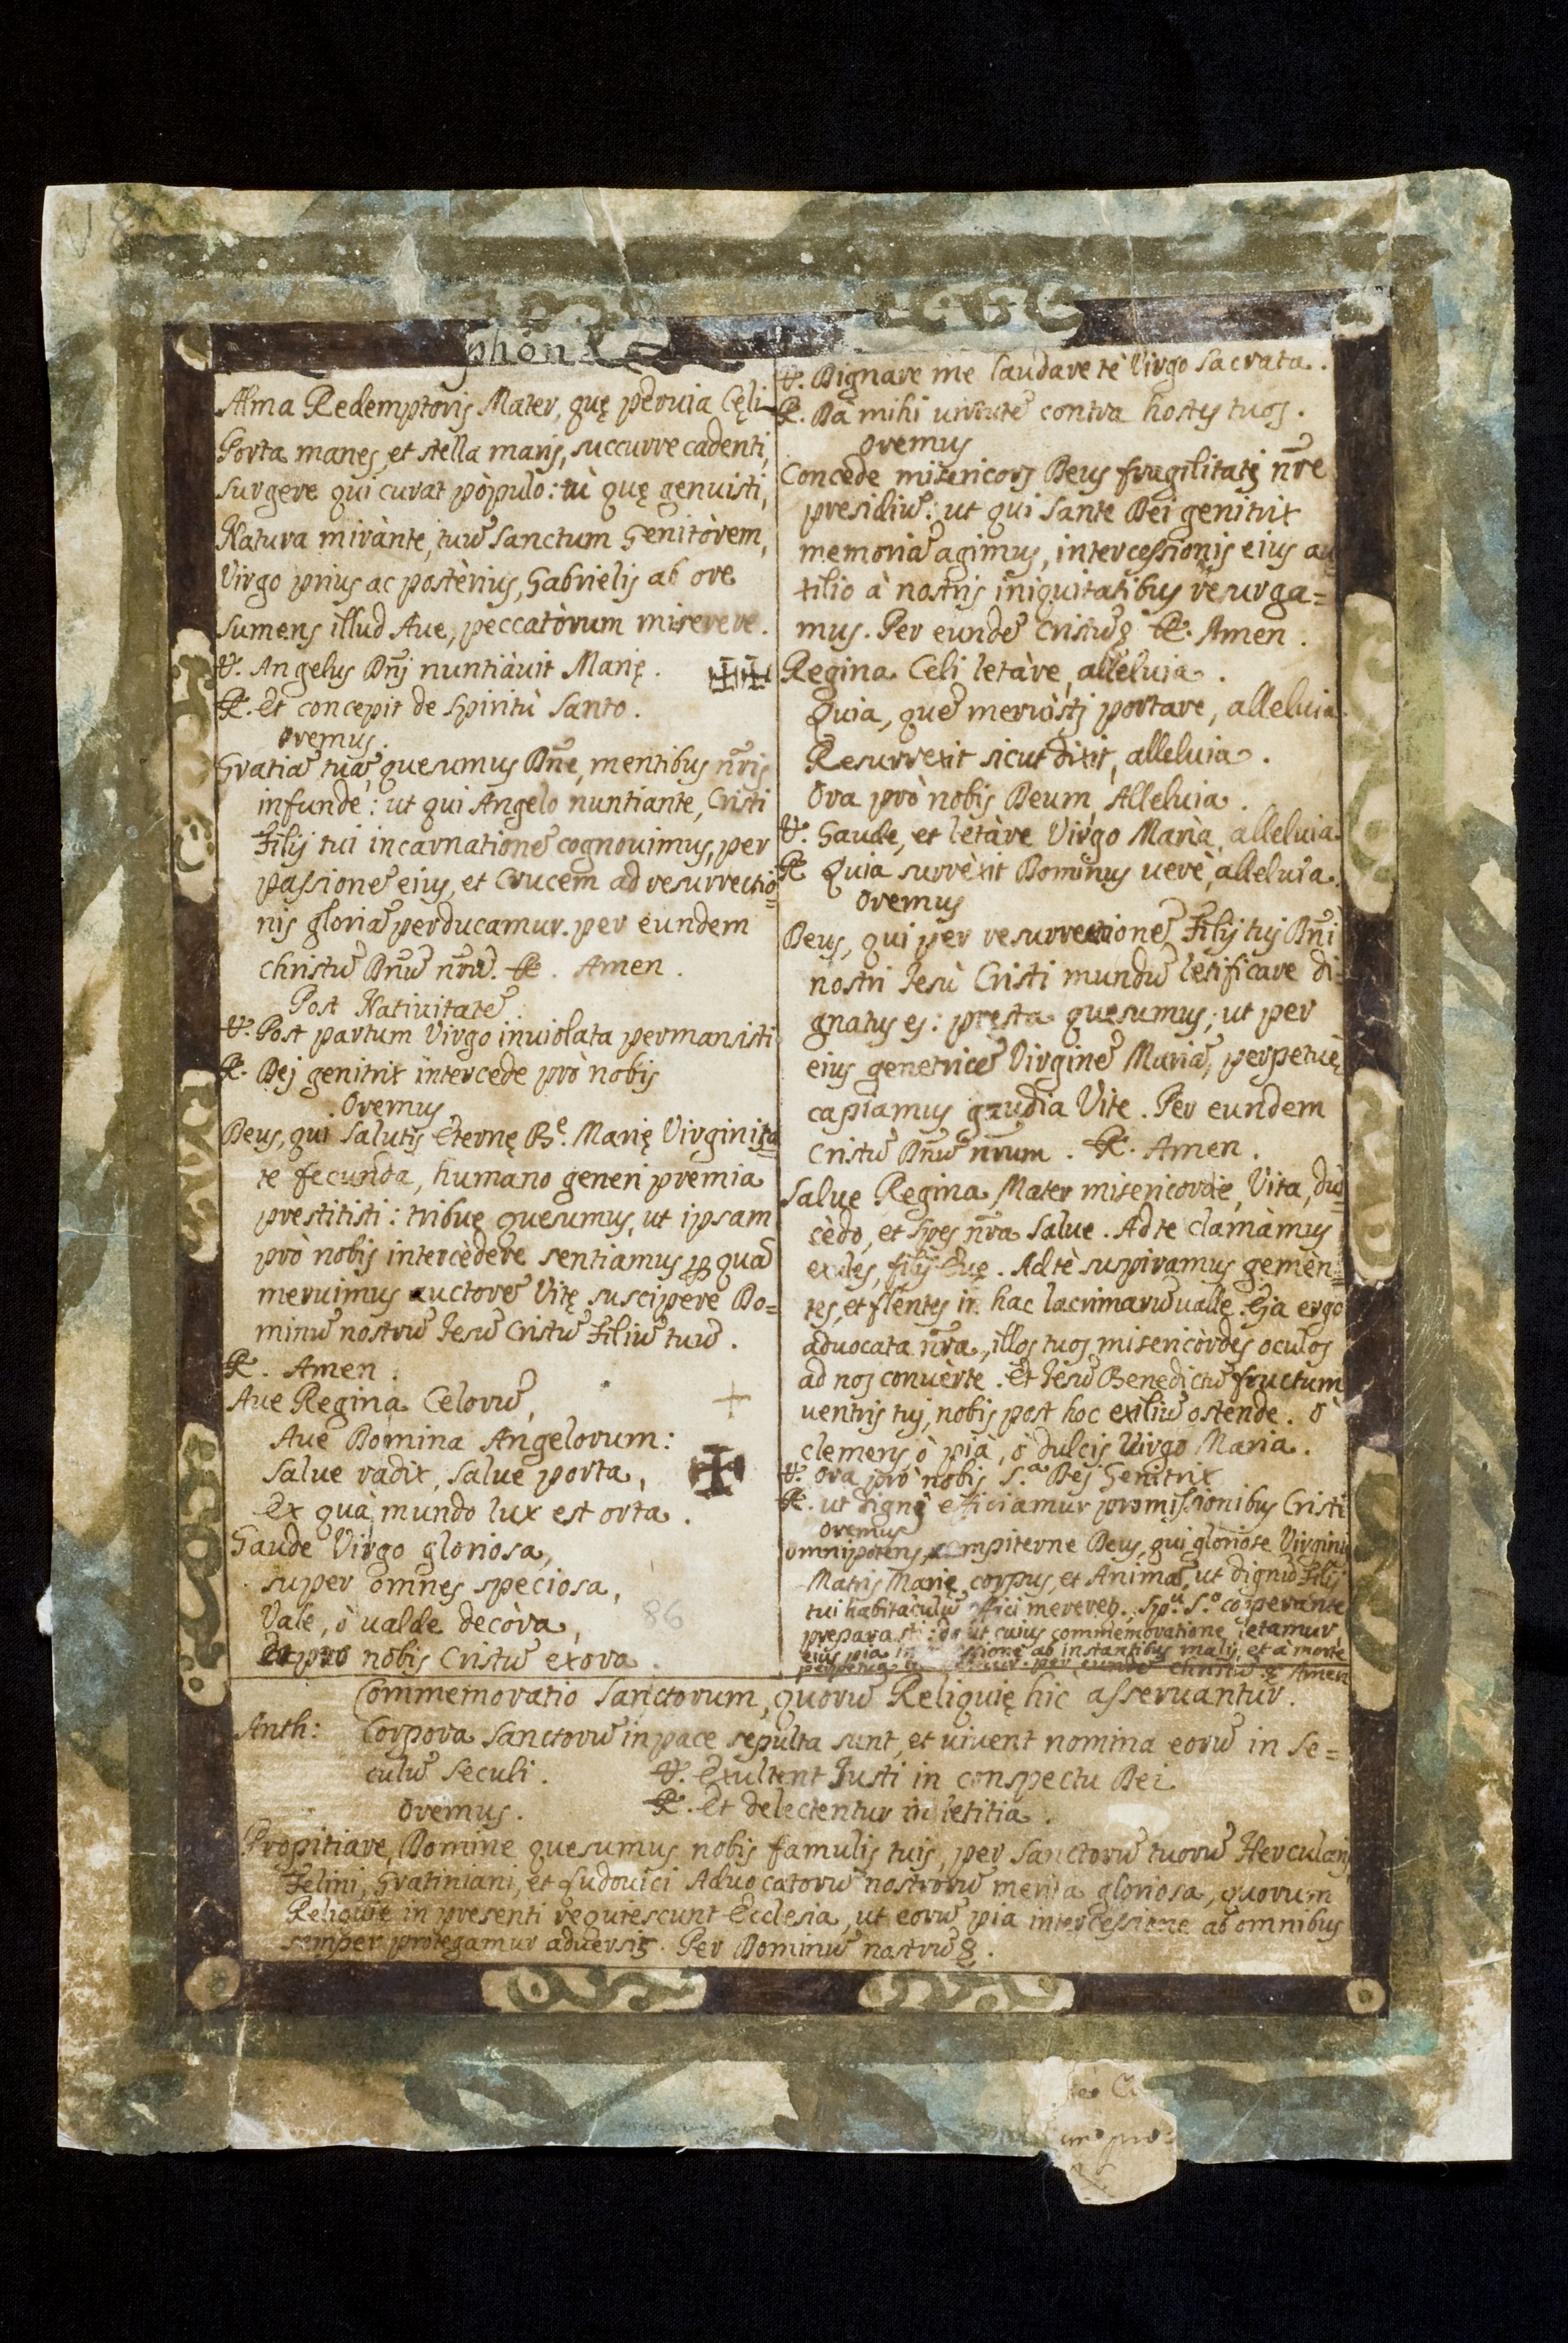 phon
Alma Redemptoris Mater, quę peruia Cęli
Porta manes, et stella maris, succurre cadenti,
surgere qui curat pòpulo: tù quę genuisti,
Natura mirànte, tuũ Sanctum Genitòrem,
Virgo prius ac postèrius, Gabrielis ab ore
Sumens illud Aue, peccatòrum miserere.
℣. Angelus Dñj nuntiàuit Marię.
℟. Et concepit de Spiritù Santo.
Oremus.
Gratiã tuã, quesumus Dñe, mentibus nr̃is
infunde: ut qui Angelo nuntiante, Cristi
Filij tui incarnationẽ cognouimus, per
passionẽ eius, et Crucem ad resurrectio=
nis gloriã perducamur. per eundem
christũ Dñũ nr̃ũ. ℟. Amen.
Post Natiuitatẽ.
℣. Post partum Virgo inuiolata permansisti
℟. Dej genitrix intercede prò nobis
Oremus
Deus, qui Salutis Eternę Bᵉ. Marię Virginita=
te fecunda, humano generi premia
prestitisti: tribue quesumus, ut ipsam
prò nobis intercèdere sentiamus ꝑ quã
meruimus auctorẽ Vitę suscipere Do=
minũ nostrũ Jesũ Cristũ Filiũ tuũ.
℟. Amen.
Aue Regina Celorũ,
Aue Domina Angelorum:
Salue radix, Salue porta,
Ex quà mundo lux est orta.
Gaude Virgo gloriosa,
super omnes speciosa,
Vale, ò ualde decòra,
et pro nobis Cristũ exora.
86
℣. Dignare me laudare tè Virgo Sacrata.
℟. Dà mihi uirtutẽ contra hostes tuos.
Oremus
Concede misericors Deus fragilitatj nr̃e
presidiũ: ut qui Sante Dei genitrix
memoriã agimus, intercessionis eius au
xilio à nostris iniquitatibus resurga=
mus. Per eundẽ Cristũ &. ℟. Amen.
Regina Celi letàre, alleluia.
Quia, quẽ meruistj portare, alleluia.
Resurrexit sicut dixit, alleluia.
Ora prò nobis Deum, Alleluia.
℣. Gaude, et letàre Virgo Marìa, alleluia.
℟. Quia surrèxit Dominus uerè, alleluia.
Oremus
Deus, qui per resurrectionẽ Filij tuj Dñi
nostri Jesù Cristi mundũ letificare di=
gnatus es: pręsta quesumus, ut per
eius genetricẽ Virginẽ Mariã, perpetuę
capiamus gaudia Vite. Per eundem
Cristũ Dñũ nr̃um. ℟. Amen.
Salue Regina, Mater misericordie, Vita, dul=
cèdo, et Spes nr̃a Salue. Ad te clamàmus
exules, filij Euę. Ad tè suspiramus gemèn=
tes, et flentes in hac lacrimarũ ualle. Eja ergo
aduocata nr̃a, illos tuos misericòrdes oculos
ad nos conuèrte. Et Jesũ Benedictũ fructum
uentris tuj, nobis post hoc exiliũ ostènde. ò
clemens, ò pia, ò dulcis Virgo Maria.
℣. Ora prò nobis S.ᵃ Dej Genitrix
℟. ut digni efficiamur promissionibus Cristi
Oremus
Omnipotens, sempiterne Deus, qui gloriose Virginis
Matris Marię corpus, et Animã, ut dignũ Filij
tui habitàculũ effici merereꝯ., Sp.ᵘ S.ᵒ cooperante
preparasti: da ut cuius commemoratione letamur,
eius pia ab instantibus malis, et à morte
per eundẽ Christũ & Amen
Commemoratio Sanctorum, quorũ Reliquię hic asseruantur.
Anth: Corpora Sanctorũ in pace sepulta sunt, et uiuent nomina eorũ in Se=
culũ Seculi. ℣. Exultent Justi in conspectu Dei
Oremus. ℟. Et delectentur in letitia.
Propitiare, Domine quesumus nobis famulis tuis, per Sanctorũ tuorũ Herculanj,
Felini, Gratiniani, et Ludouici Aduocatorũ nostrorũ merita gloriosa, quorum
Reliquię in presenti requiescunt Ecclesia, ut eorũ pia intercessione ab omnibus
semper protegamur aduersis. Per Dominũ nostrũ &.